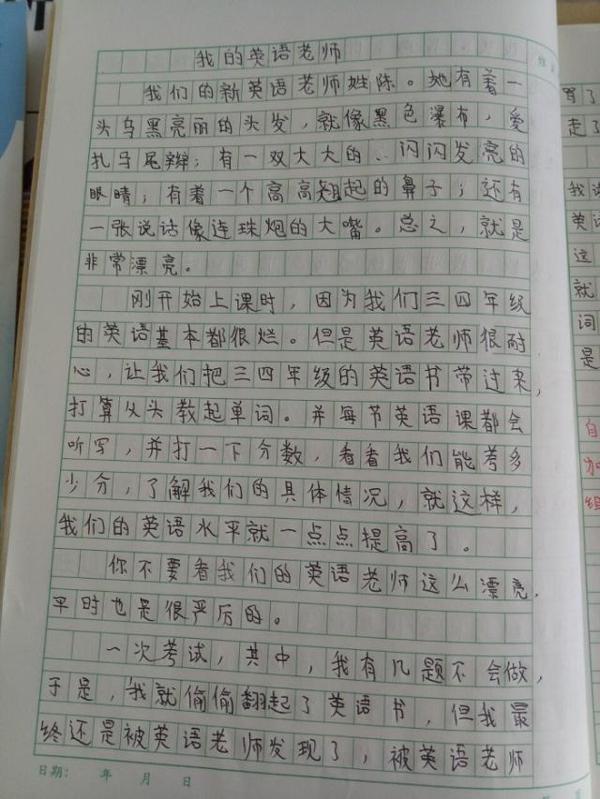 我的英语老师
我们的新英语老师姓陈。她有着一
头乌黑亮丽的头发，就像黑色瀑布，爱
扎马尾辫；有一双大大的、闪闪发亮的
眼睛；有着一个高高翘起的鼻子；还有
一张说话像连珠炮的大嘴。总之，就是
非常漂亮。
刚开始上课时，因为我们三四年级
的英语基本都很烂。但是英语老师很耐
心，让我们把三四年级的英语书带过来，
打算从头教起单词。并每节英语课都会
听写，并打一下分数，看看我们能考多
少分，了解我们的具体情况，就这样，
我们的英语水平就一点点提高了。
你不要看我们的英语老师这么漂亮，
平时也是很严后的。
一次考试，其中，我有几题不会做，
于是，我就偷偷翻起了英语书，但我最
终还是被英语老师发现了，被英语老师
日期： 年 月 日
骂了
走了
我说
英语
这
就
词
是
自
加
组